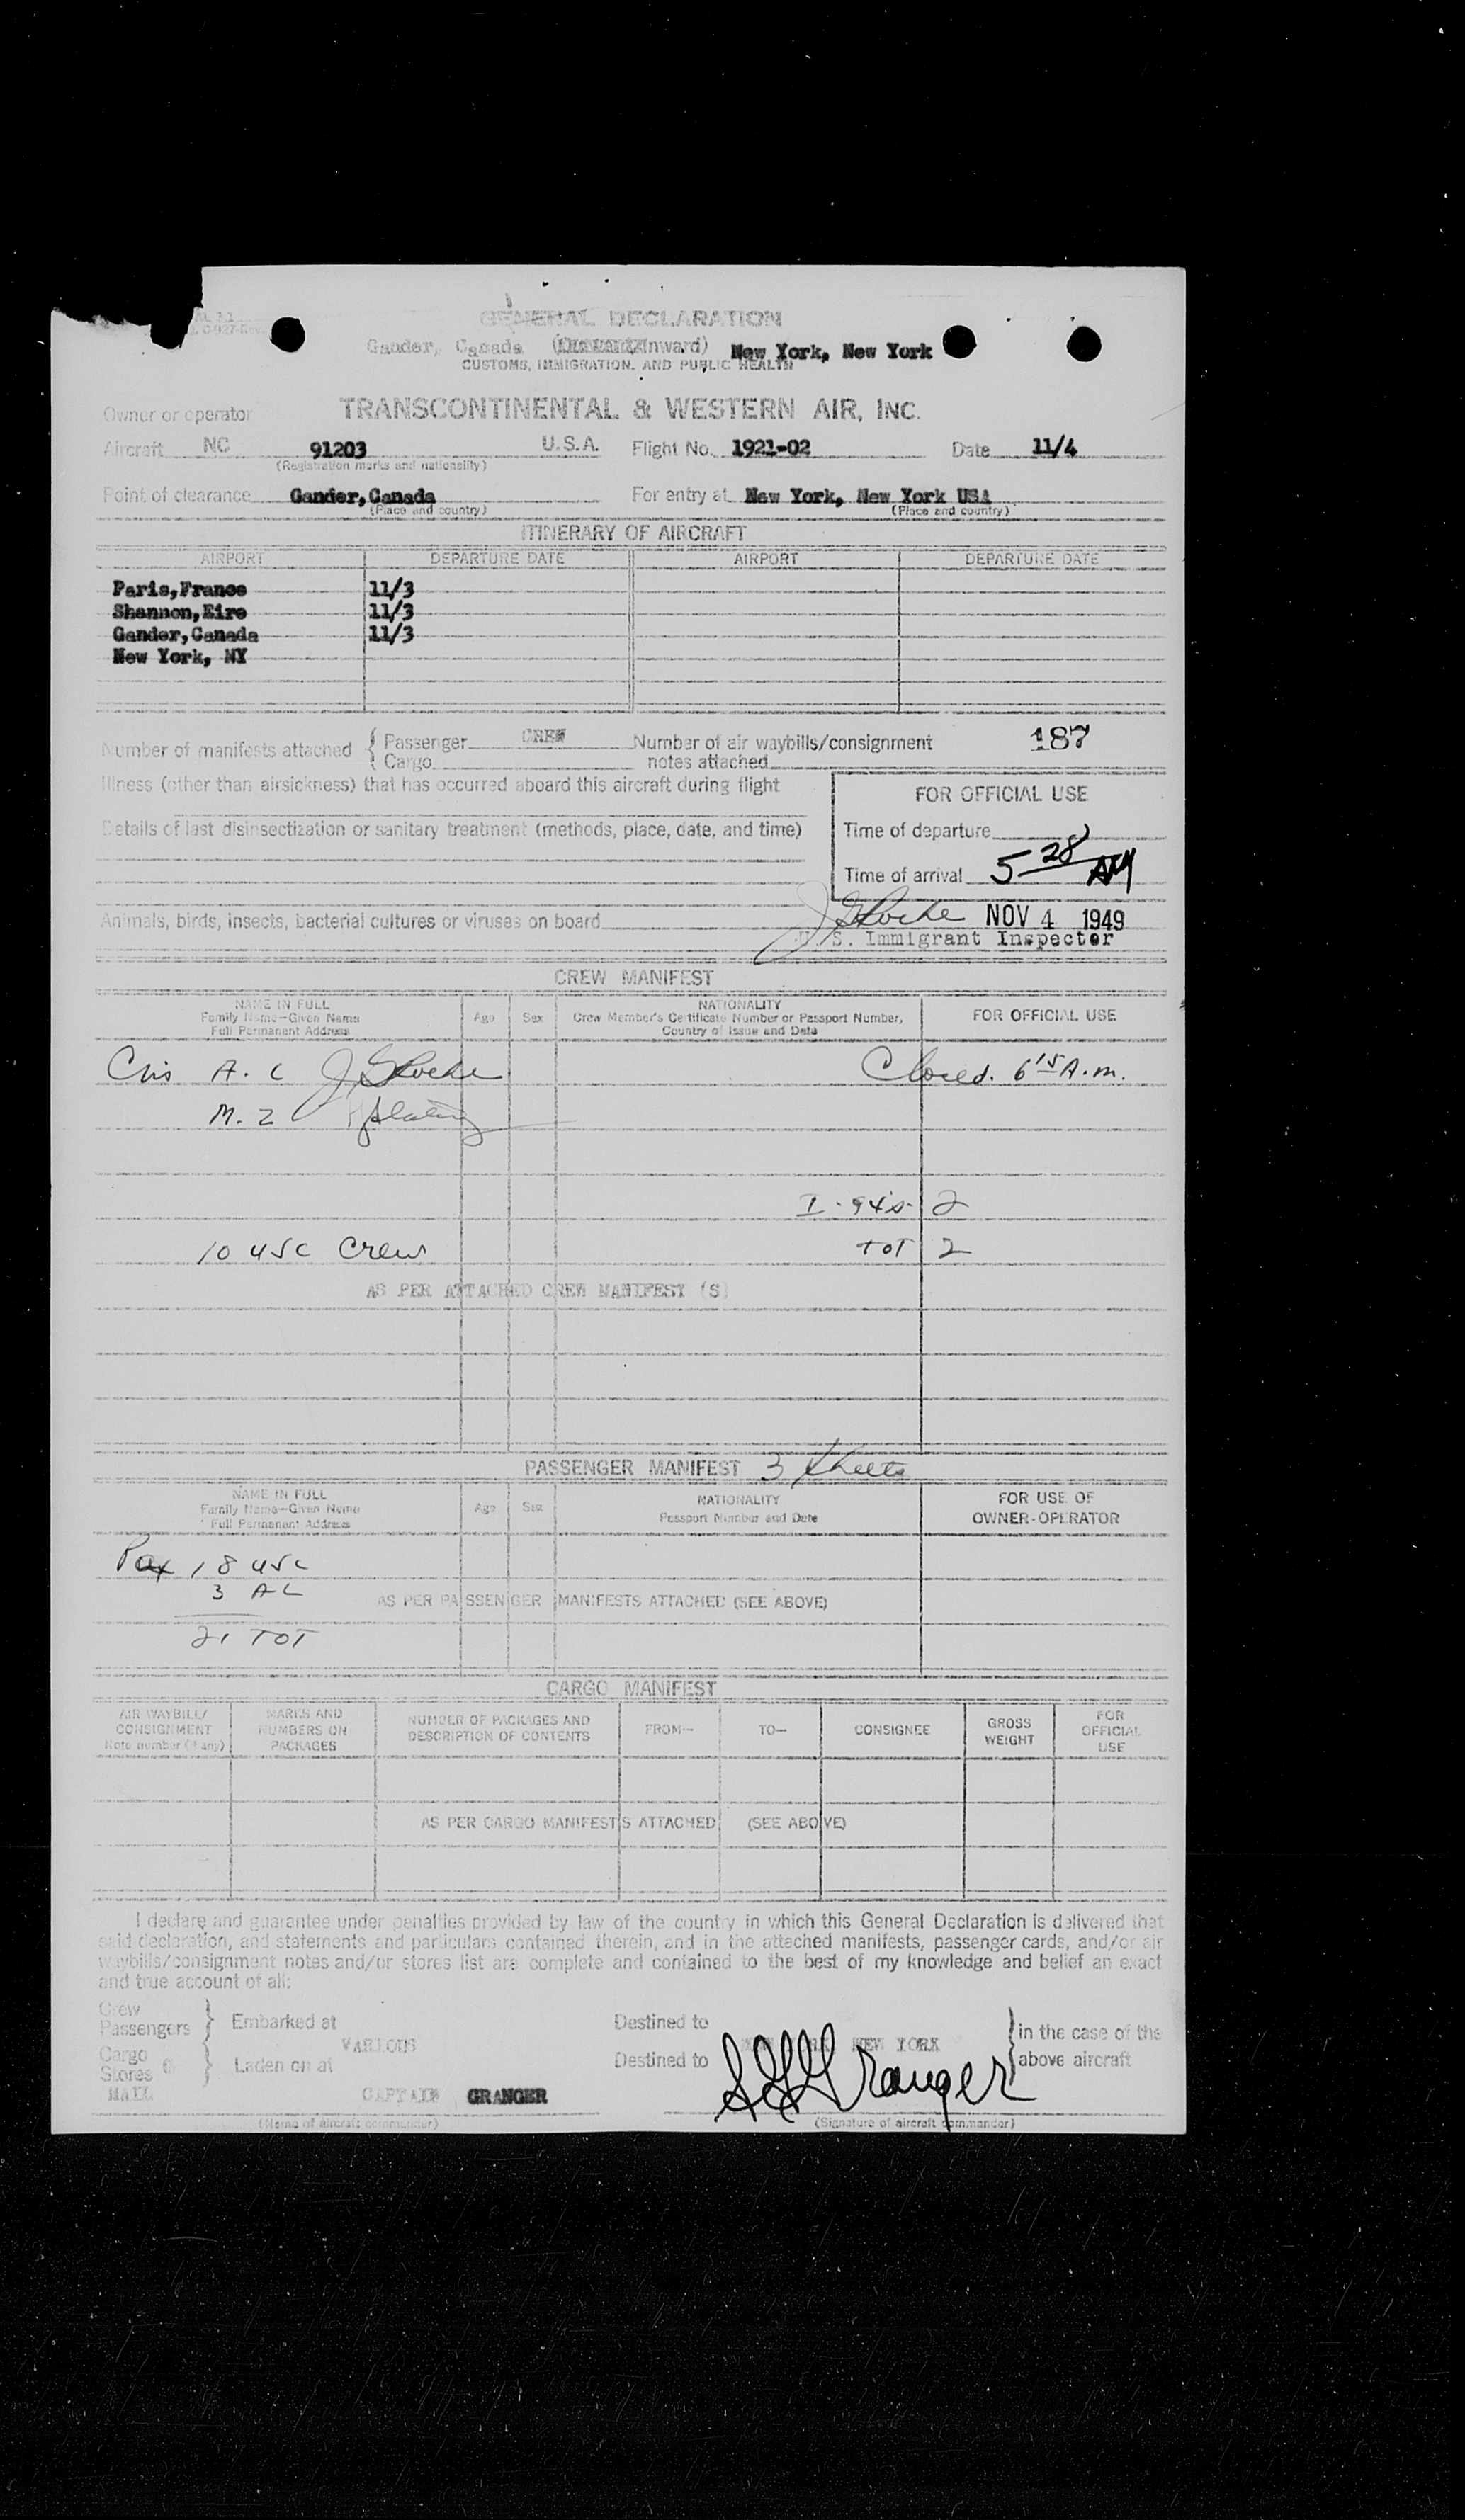 GENERAL DECLARATION
Gander, Canada (Inward) New York, New York
CUSTOMS, IMMIGRATION, AND PUBLIC HEALTH
Owner or operator TRANSCONTINENTAL & WESTERN AIR, INC.
Aircraft NC 91203 U.S.A. Flight No. 1921-02 Date 11/4
(Registration marks and nationality)
Point of clearance Gander, Canada For entry at New York, New York USA
(Place and country) (Place and country)
ITINERARY OF AIRCRAFT
AIRPORT DEPARTURE DATE AIRPORT DEPARTURE DATE
Paris, France 11/3
Shannon, Eire 11/3
Gander, Canada 11/3
New York, NY
Number of manifests attached { Passenger CREW Number of air waybills/consignment 187
Cargo notes attached
Illness (other than airsickness) that has occurred aboard this aircraft during flight
FOR OFFICIAL USE
Details of last disinsectization or sanitary treatment (methods, place, date, and time)
Time of departure
Time of arrival 5 28 AM
Animals, birds, insects, bacterial cultures or viruses on board
NOV 4 1949
U. S. Immigrant Inspector
CREW MANIFEST
NAME IN FULL
Family Name—Given Name
Full Permanent Address
Age Sex
NATIONALITY
Crew Member's Certificate Number or Passport Number,
Country of Issue and Date
FOR OFFICIAL USE
A. C Closed. 6 15 A.m.
M. Z
I-94's 2
10 USC Crew TOT 2
AS PER ATTACHED CREW MANIFEST (S)
PASSENGER MANIFEST 3 sheets
NAME IN FULL
Family Name—Given Name
Full Permanent Address
Age Sex
NATIONALITY
Passport Number and Date
FOR USE OF
OWNER-OPERATOR
Pax 18 USC
3 AL
AS PER PASSENGER MANIFESTS ATTACHED (SEE ABOVE)
21 TOT
CARGO MANIFEST
AIR WAYBILL/
CONSIGNMENT
Note number (if any)
MARKS AND
NUMBERS ON
PACKAGES
NUMBER OF PACKAGES AND
DESCRIPTION OF CONTENTS
FROM— TO— CONSIGNEE
GROSS
WEIGHT
FOR
OFFICIAL
USE
AS PER CARGO MANIFESTS ATTACHED (SEE ABOVE)
I declare and guarantee under penalties provided by law of the country in which this General Declaration is delivered that
said declaration, and statements and particulars contained therein, and in the attached manifests, passenger cards, and/or air
waybills/consignment notes and/or stores list are complete and contained to the best of my knowledge and belief an exact
and true account of all:
Crew
Passengers } Embarked at Destined to
in the case of the
VARIOUS NEW YORK
Cargo
Stores } Laden on at Destined to above aircraft
MAIL CAPTAIN GRANGER Granger
(Name of aircraft commander) (Signature of aircraft commander)